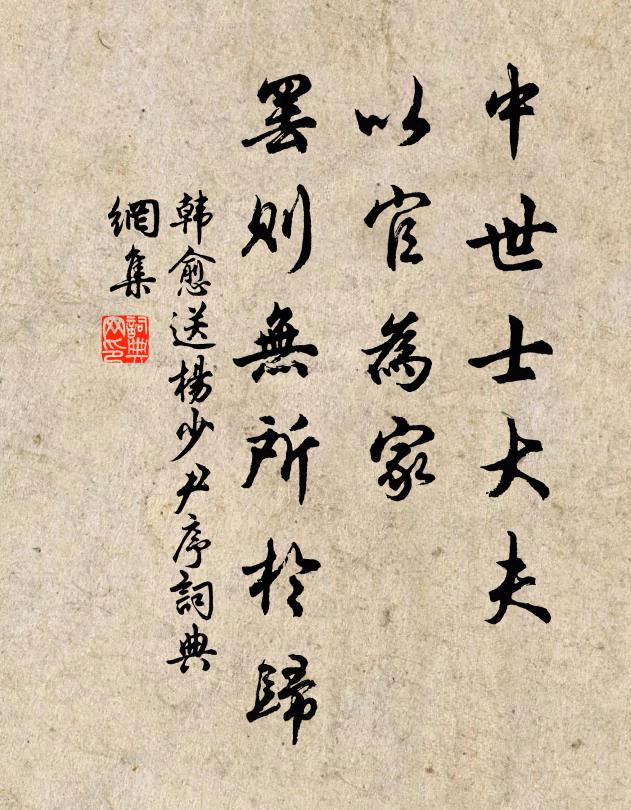 中世士大夫
以官為家
罢則無所於歸
韩愈送楊少尹序詞典
網集
詞典
网印